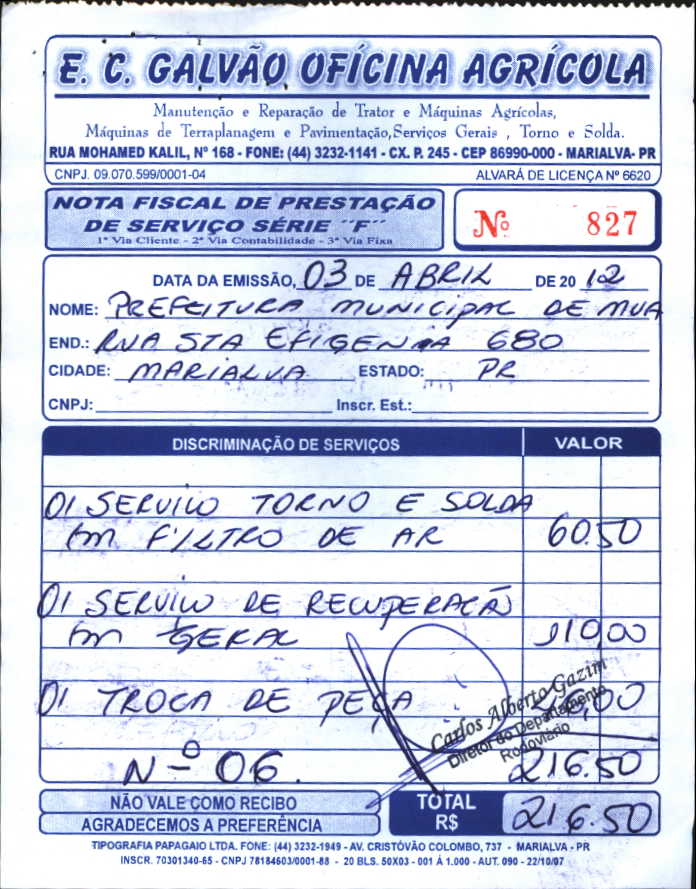 E. C. GALVÃO OFÍCINA AGRÍCOLA
Manutenção e Reparação de Trator e Máquinas Agrícolas,
Máquinas de Terraplanagem e Pavimentação,Serviços Gerais , Torno e Solda.
RUA MOHAMED KALIL, Nº 168 - FONE: (44) 3232-1141 - CX. P. 245 - CEP 86990-000 - MARIALVA- PR
CNPJ. 09.070.599/0001-04 ALVARÁ DE LICENÇA Nº 6620
NOTA FISCAL DE PRESTAÇÃO
DE SERVIÇO SÉRIE ´´F´´
1ª Via Cliente - 2ª Via Contabilidade - 3ª Via Fixa
Nº 827
DATA DA EMISSÃO, 03 DE ABRIL DE 20 12
NOME: PREFEITURA MUNICIPAL DE MUA
END.: RUA STA EFIGENIA 680
CIDADE: MARIALVA ESTADO: PR
CNPJ: Inscr. Est.:
DISCRIMINAÇÃO DE SERVIÇOS VALOR
01 SERVIÇO TORNO E SOLDA
Em FILTRO DE AR 60.50
01 SERVIÇO DE RECUPERAÇÃO
Em GERAL 110,00
01 TROCA DE PEÇA
Carlos Alberto Gazim
Diretor do Departamento
Rodoviário
Nº 06. 216.50
NÃO VALE COMO RECIBO
AGRADECEMOS A PREFERÊNCIA
TOTAL
R$ 216.50
TIPOGRAFIA PAPAGAIO LTDA. FONE: (44) 3232-1949 - AV. CRISTÓVÃO COLOMBO, 737 - MARIALVA - PR
INSCR. 70301340-65 - CNPJ 78184603/0001-88 - 20 BLS. 50X03 - 001 Á 1.000 - AUT. 090 - 22/10/07